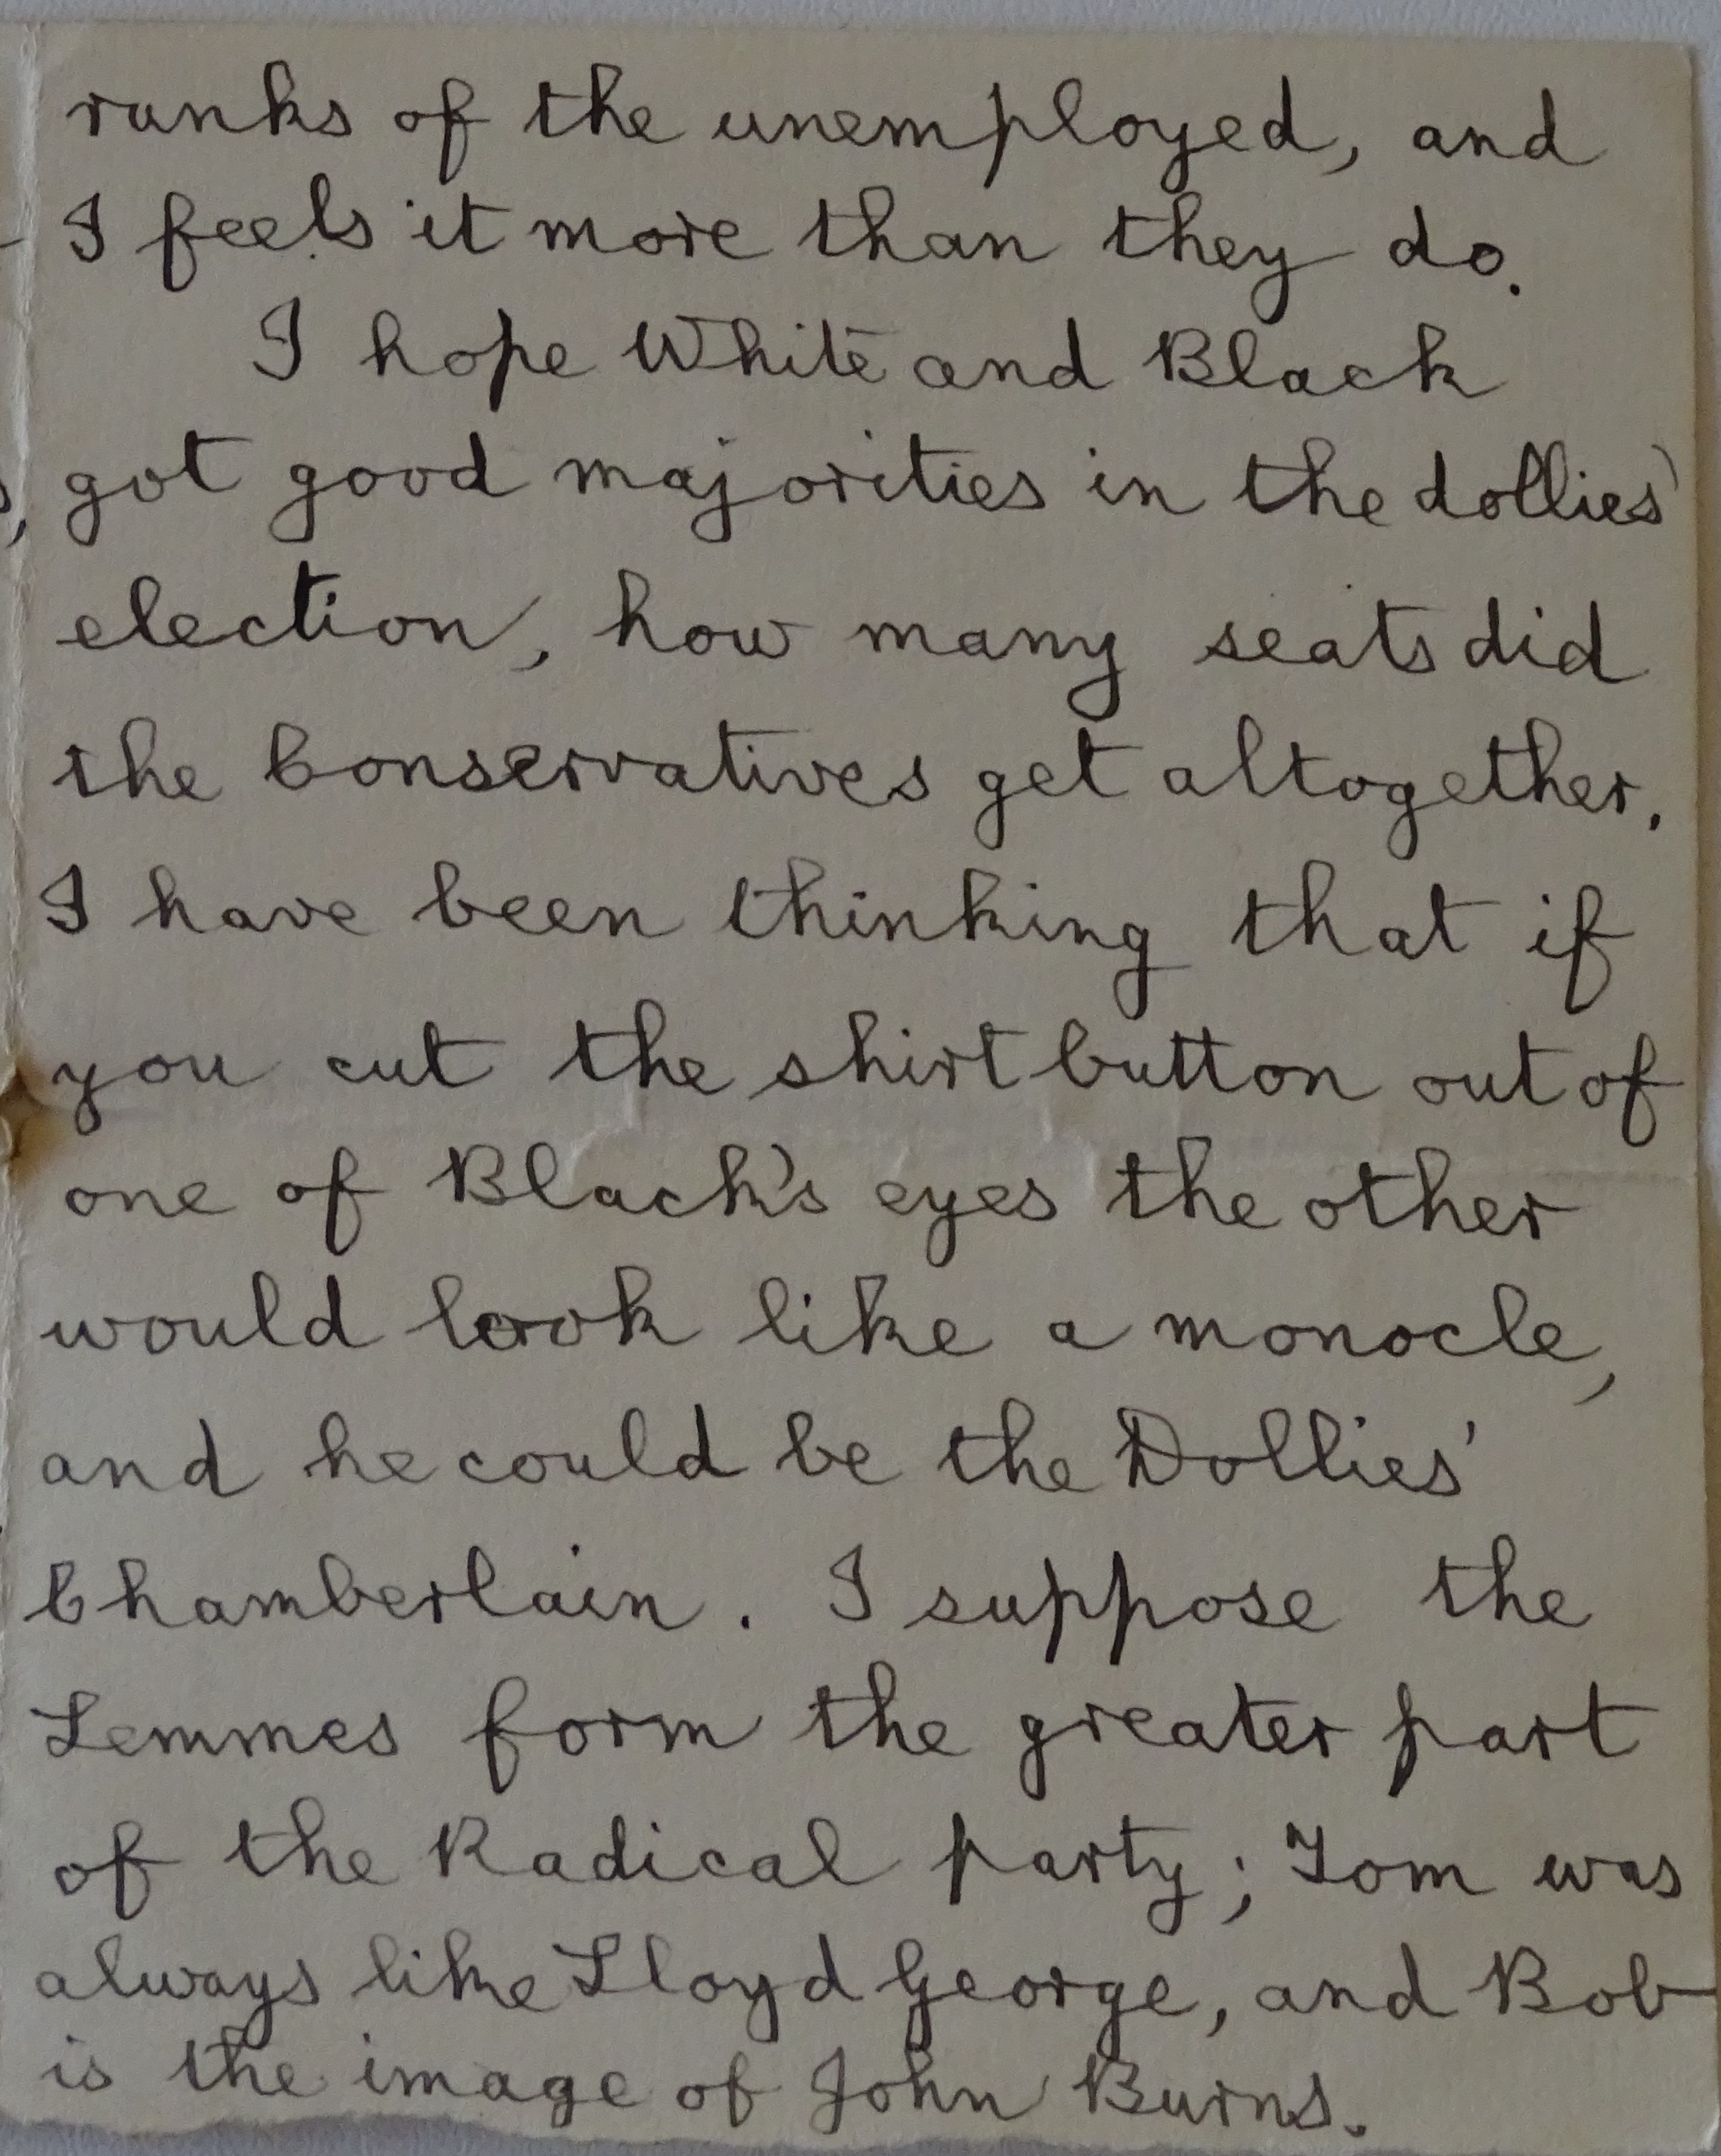 ranks of the unemployed, and
I feels it more than they do.
I hope White and Black
got good majorities in the dollies'
election, how many seats did
the Conservatives get altogether.
I have been thinking that if
you cut the shirt button out of
one of Black's eyes the other
would look like a monocle,
and he could be the Dollies'
Chamberlain. I suppose the
Lemmes form the greater part
of the Radical party; Tom was
always like Lloyd George, and Bob
is the image of John Burns.